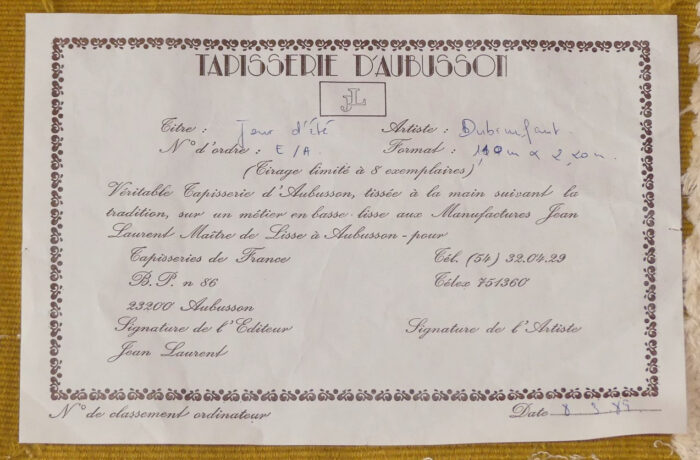 TAPISSERIE D'AUBUSSON
JL
Titre : Jour d'été Artiste : Dubrunfaut.
N° d'ordre : E/A. Format : 1,40m x 2,20m.
(Tirage limité à 8 exemplaires)
Véritable Tapisserie d'Aubusson, tissée à la main suivant la
tradition, sur un métier en basse lisse aux Manufactures Jean
Laurent Maître de Lisse à Aubusson - pour
Tapisseries de France Tél. (54) 32.04.29
B.P. n 86 Télex 751360
23200 Aubusson
Signature de l'Editeur Signature de l'Artiste
Jean Laurent
N° de classement ordinateur Date 8 3 89